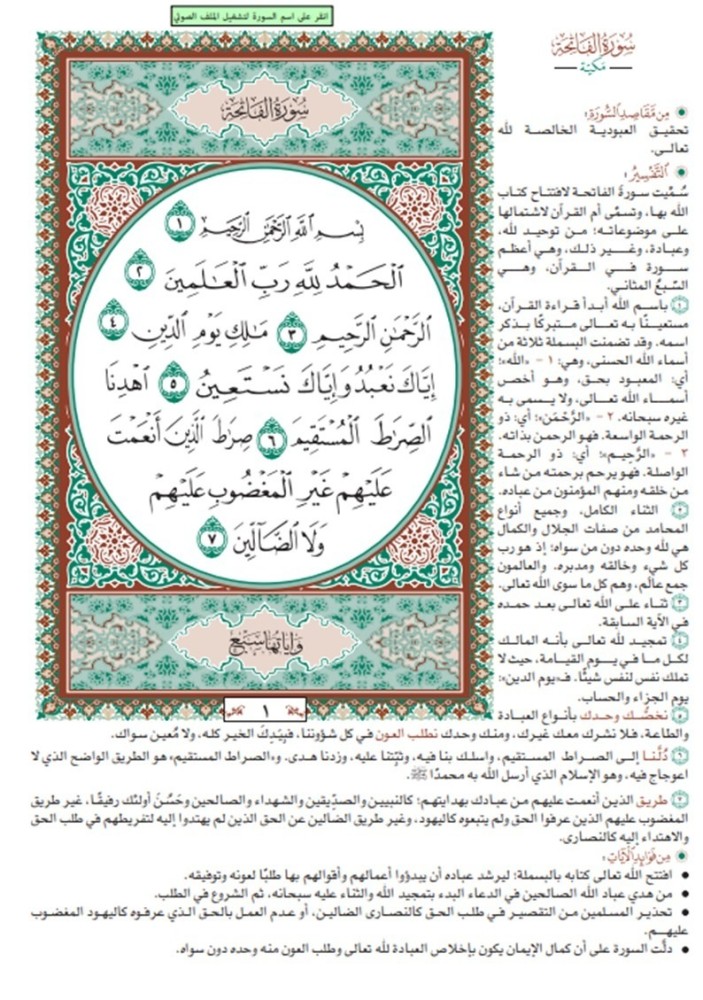 انقر على اسم السورة لتشغيل الملف الصوتي
سُورَةُ الفَاتِحَةِ
مَكيّة
سُورَةُ الفَاتِحَةِ
بِسْمِ ٱللَّهِ ٱلرَّحْمَٰنِ ٱلرَّحِيمِ ١
ٱلْحَمْدُ لِلَّهِ رَبِّ ٱلْعَٰلَمِينَ ٢
ٱلرَّحْمَٰنِ ٱلرَّحِيمِ ٣ مَٰلِكِ يَوْمِ ٱلدِّينِ ٤
إِيَّاكَ نَعْبُدُ وَإِيَّاكَ نَسْتَعِينُ ٥ ٱهْدِنَا
ٱلصِّرَٰطَ ٱلْمُسْتَقِيمَ ٦ صِرَٰطَ ٱلَّذِينَ أَنْعَمْتَ
عَلَيْهِمْ غَيْرِ ٱلْمَغْضُوبِ عَلَيْهِمْ
وَلَا ٱلضَّآلِّينَ ٧
وَآيَاتُهَا سَبْعٌ
١
• مِن مَّقَاصِدِ السُّورَةِ:
تحقيق العبودية الخالصة لله
تعالى.
• التَّفْسِيرُ:
سُمِّيت سورةُ الفاتحة لافتتاح كتاب
الله بها، وتسمَّى أم القرآن لاشتمالها
على موضوعاته؛ من توحيد لله،
وعبادة، وغير ذلك، وهي أعظم
سورة في القرآن، وهي
السَّبعُ المثاني.
١ باسم الله أبدأ قراءة القرآن،
مستعينًا به تعالى متبركًا بذكر
اسمه. وقد تضمنت البسملة ثلاثة من
أسماء الله الحسنى، وهي: ١ - «الله»؛
أي: المعبود بحق، وهو أخص
أسماء الله تعالى، ولا يسمى به
غيره سبحانه. ٢ - «الرَّحْمَن»؛ أي: ذو
الرحمة الواسعة. فهو الرحمن بذاته.
٣ - «الرَّحِيم»؛ أي: ذو الرحمة
الواصلة. فهو يرحم برحمته من شاء
من خلقه ومنهم المؤمنون من عباده.
٢ الثناء الكامل، وجميع أنواع
المحامد من صفات الجلال والكمال
هي لله وحده دون من سواه؛ إذ هو رب
كل شيء وخالقه ومدبره. والعالمون
جمع عالَم، وهم كل ما سوى الله تعالى.
٣ ثناء على الله تعالى بعد حمده
في الآية السابقة.
٤ تمجيد لله تعالى بأنه المالك
لكل ما في يوم القيامة، حيث لا
تملك نفس لنفس شيئًا. فـ«يوم الدين»:
يوم الجزاء والحساب.
٥ نخصُّك وحدك بأنواع العبادة
والطاعة، فلا نشرك معك غيرك، ومنك وحدك نطلب العون في كل شؤوننا، فبِيَدِكَ الخير كله، ولا مُعين سواك.
٦ دُلَّنا إلى الصراط المستقيم، واسلك بنا فيه، وثبِّتنا عليه، وزدنا هدى. و«الصراط المستقيم» هو الطريق الواضح الذي لا
اعوجاج فيه، وهو الإسلام الذي أرسل الله به محمدًا ﷺ.
٧ طريق الذين أنعمت عليهم من عبادك بهدايتهم؛ كالنبيين والصدّيقين والشهداء والصالحين وحَسُنَ أولئك رفيقًا، غير طريق
المغضوب عليهم الذين عرفوا الحق ولم يتبعوه كاليهود، وغير طريق الضالين عن الحق الذين لم يهتدوا إليه لتفريطهم في طلب الحق
والاهتداء إليه كالنصارى.
• مِن فَوَائِدِ الآيَاتِ:
• افتتح الله تعالى كتابه بالبسملة؛ ليرشد عباده أن يبدؤوا أعمالهم وأقوالهم بها طلبًا لعونه وتوفيقه.
• من هدي عباد الله الصالحين في الدعاء البدء بتمجيد الله والثناء عليه سبحانه، ثم الشروع في الطلب.
• تحذير المسلمين من التقصير في طلب الحق كالنصارى الضالين، أو عدم العمل بالحق الذي عرفوه كاليهود المغضوب
عليهم.
• دلَّت السورة على أن كمال الإيمان يكون بإخلاص العبادة لله تعالى وطلب العون منه وحده دون سواه.